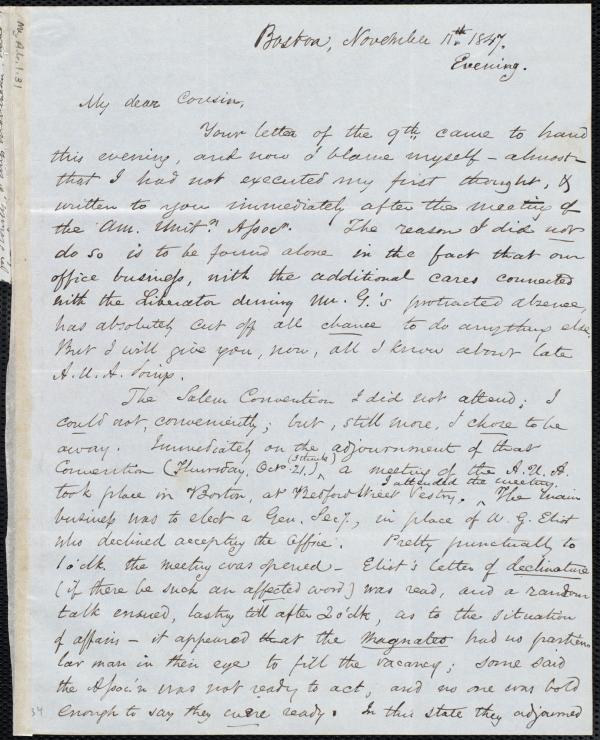 Boston, November 11th. 1847.
Evening.
My dear Cousin,
Your letter of the 9th came to hand
this evening, and now I blame myself - almost -
that I had not executed my first thought, &
written to you immediately after the meeting of
the Am. Unitn. Assocn. The reason I did not
do so is to be found alone in the fact that our
office business, with the additional cares connected
with the Liberator during Mr. G.'s protracted absence,
has absolutely cut off all chance to do anything else.
But I will give you, now, all I know about late
A.U.A. doings.
The Salem Convention I did not attend; I
could not, conveniently; but, still more, I chose to be
away. Immediately on the adjournment of that
Convention (Thursday, Octo. 21,) (I think) a meeting of the A.U.A.
took place in Boston, at Bedford Street Vestry. I attended the meeting. The main
business was to elect a Gen. Secy., in place of W. G. Eliot
who declined accepting the office. Pretty punctually to
1 o'clk. the meeting was opened - Eliot's letter of declinature
(if there be such an affected word) was read, and a random
talk ensued, lasting till after 2 o'clk, as to the situation
of affairs - it appeared that the Magnates had no particu-
lar man in their eye to fill the vacancy; some said
the Associn was not ready to act, and no one was bold
enough to say they were ready. In this state they adjourned
34